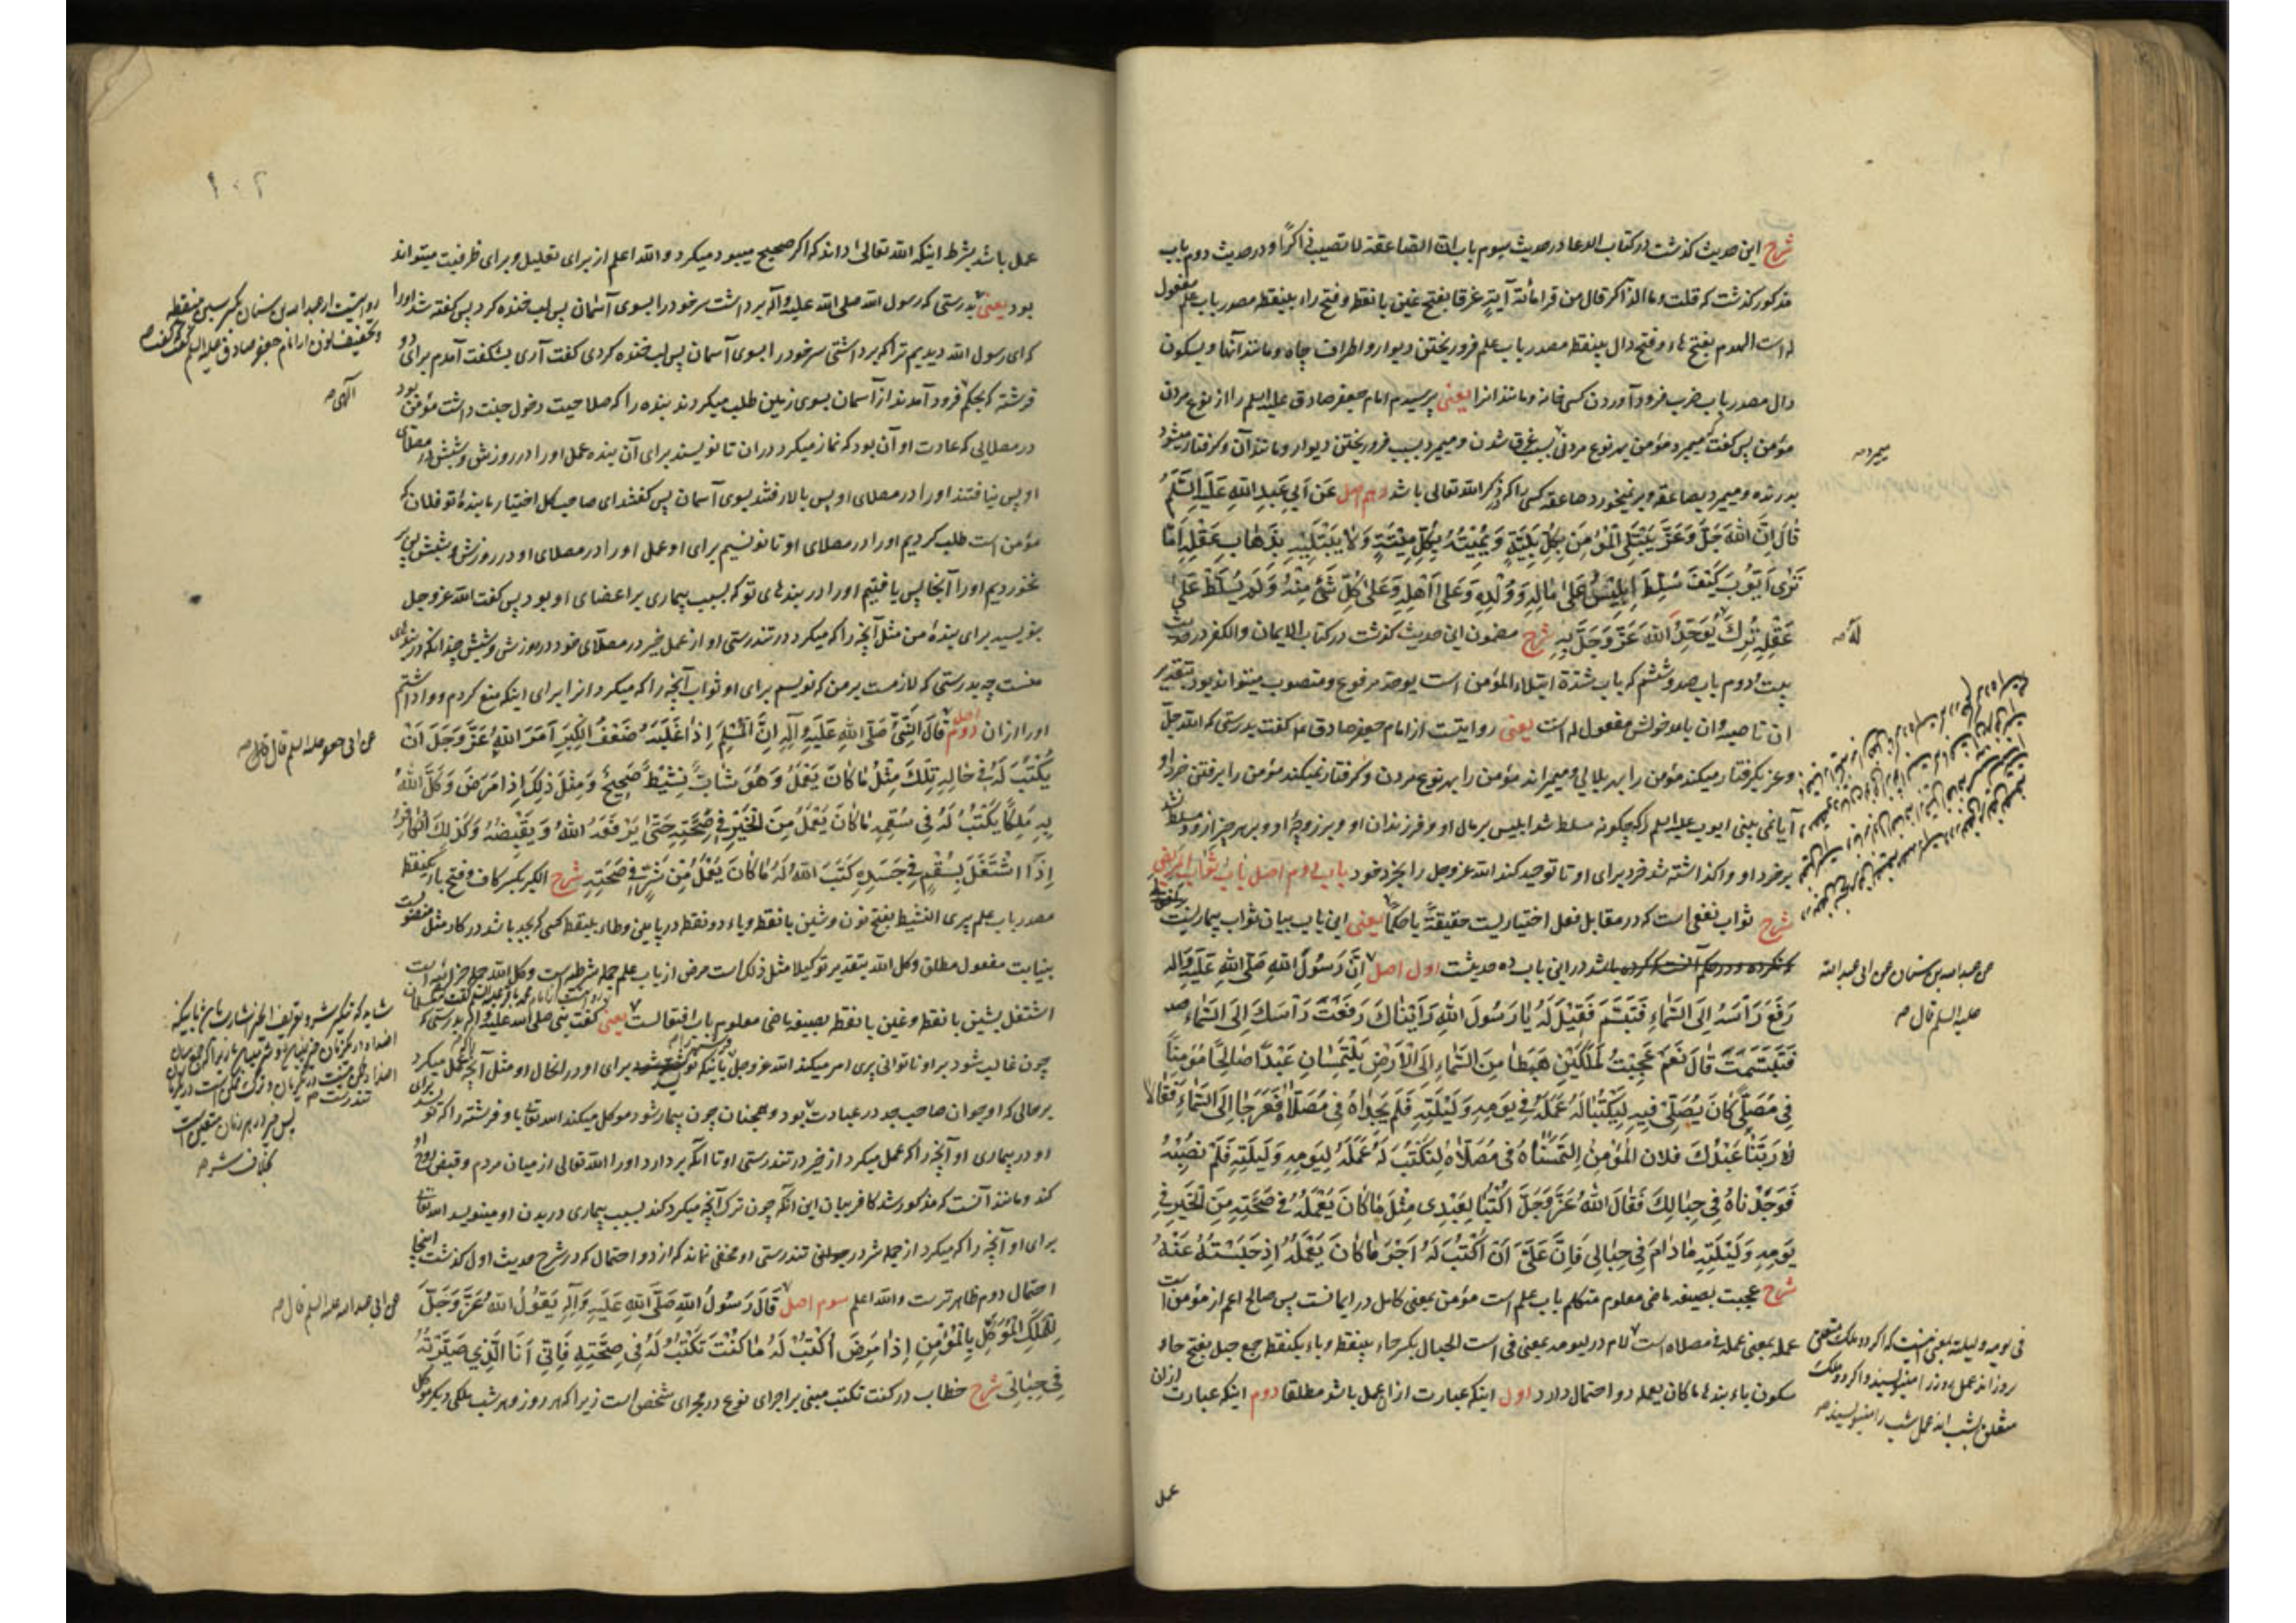 شرح این حدیث گذشت در کتاب الدعا در حدیث سیوم باب ان الصاعقة لا تصیب ذاکرا و در حدیث دوم باب
مذکور گذشت که قلت و ما الذاکر قال من قرا مأئة آیة غرقا بفتح غین با نقطه و فتح راء بینقطه مصدر باب علم مفعول
له است الهدم بفتح هاء و فتح دال بینقطه مصدر باب علم فرو ریختن دیوار و اطراف چاه و مانند آنها و بسکون
دال مصدر باب ضرب فرود آوردن کسی خانه و مانند انرا یعنی پرسیدم امام جعفر صادق علیه السلم را از نوع مردن
مؤمن پس گفت میمیرد مؤمن بهر نوع مردنی بسبب غرق شدن و میمیرد بسبب فرو ریختن دیوار و مانند آن و گرفتار میشود
میمیرد صه
بدرنده و میمیرد بصاعقه و بر نمیخورد صاعقه کسی را که در ذکر الله تعالی باشد دهم اصل عَن اَبی عَبدِ اللهِ عَلَیهِ السَّلَمُ
قالَ اِنَّ اللهَ جَلَّ وَعَزَّ یَبتَلِی المُؤمِنَ بِکُلِّ بَلِیَّةٍ وَیُمیتُهُ بِکُلِّ میتَةٍ وَلا یَبتَلیهِ بِذَهابِ عَقلِهِ اَما
تَری اَیّوبَ کَیفَ سُلِّطَ اِبلیسُ عَلی مالِهِ وَوُلدِهِ وَعَلی اَهلِهِ وَعَلی کُلِّ شَیءٍ مِنهُ وَلَم یُسَلَّط عَلی
عَقلِهِ تُرِکَ یُوَحِّدُ اللهَ عَزَّ وَجَلَّ بِهِ شرح مضمون این حدیث گذشت در کتاب الایمان و الکفر در حدیث
لَهُ صه
بیست و دوم باب صد و ششم که باب شدة ابتلاء المؤمن است یوحد مرفوع و منصوب میتواند بود بتقدیر
ان ناصبه و ان با مدخولش مفعول له است یعنی روایتست از امام جعفر صادق ع گفت بدرستی که الله جل
و عز گرفتار میکند مؤمن را بهر بلایی و میمیراند مؤمن را بهر نوع مردن و گرفتار نمیکند مؤمن را برفتن خرد او
آیا نمی بینی ایوب علیه السلم را که چگونه مسلط شد ابلیس بر مال او و فرزندان او و بر زوجه او و بر هر چیز از او و مسلط نشد
بر خرد او واگذاشته شد خرد برای او تا توحید کند الله عز و جل را بخرد خود باب دوم اصل باب ثواب المرض
شرح ثواب نفعی است که در مقابل فعل اختیاریست حقیقة یا حکما یعنی این باب بیان ثواب بیماریست
باشد در این باب ده حدیث اول اصل اَنَّ رَسولَ اللهِ صَلَّی اللهُ عَلَیهِ وَآلِهِ
عن عبدالله بن سنان عن ابی عبدالله
علیه السلم قال صه
رَفَعَ رَأسَهُ اِلَی السَّماءِ فَتَبَسَّمَ فَقیلَ لَهُ یا رَسولَ اللهِ رَاَیناکَ رَفَعتَ رَأسَکَ اِلَی السَّماءِ
فَتَبَسَّمتَ قالَ نَعَم عَجِبتُ لِمَلَکَینِ هَبَطا مِنَ السَّماءِ اِلَی الاَرضِ یَلتَمِسانِ عَبداً صالِحاً مُؤمِناً
فی مُصَلًّی کانَ یُصَلّی فیهِ لِیَکتُبا لَهُ عَمَلَهُ فی یَومِهِ وَلَیلَتِهِ فَلَم یَجِداهُ فی مُصَلّاهُ فَعَرَجا اِلَی السَّماءِ فَقالا
رَبَّنا عَبدُکَ فلان المُؤمِنُ اِلتَمَسناهُ فی مُصَلّاهُ لِنَکتُبَ لَهُ عَمَلَهُ لِیَومِهِ وَلَیلَتِهِ فَلَم نُصِبهُ
فَوَجَدناهُ فی حِبالِکَ فَقالَ اللهُ عَزَّ وَجَلَّ اُکتُبا لِعَبدی مِثلَ ما کانَ یَعمَلُهُ فی صِحَّتِهِ مِنَ الخَیرِ فی
یَومِهِ وَلَیلَتِهِ مادامَ فی حِبالی فَاِنَّ عَلَیَّ اَن اَکتُبَ لَهُ اَجرَ ما کانَ یَعمَلُهُ اِذ حَبَستُهُ عَنهُ
شرح عجبت بصیغه ماضی معلوم متکلم باب علم است مؤمن بمعنی کامل در ایمانست پس صالح اعم از مؤمن است
عمله بمعنی عمله فی مصلاه است لام در لیومه بمعنی فی است الحبال بکسر حاء بینقطه و باء یکنقطه جمع حبل بفتح حاء و
سکون باء بندها ما کان یعمله دو احتمال دارد اول اینکه عبارت از ان عمل باشد مطلقا دوم اینکه عبارت از ان
فی یومه و لیلته بمعنی
روز اند عمل روز را مینویسند و اگر دو ملک
متعلق بشب اند عمل شب را مینویسند صه
عمل
۱۰۲
عمل باشد بشرط اینکه الله تعالی داند که اگر صحیح میبود میکرد و الله اعلم از برای تعلیل و برای ظرفیت میتواند
بود یعنی بدرستی که رسول الله صلی الله علیه و آله برداشت سر خود را بسوی آسمان پس لب خنده کرد پس گفته شد او را
روایتست از عبدالله بن سنان بکسر سین بینقطه
و تخفیف نون از امام جعفر صادق علیه السلم گفت
که ای رسول الله دیدیم ترا که برداشتی سر خود را بسوی آسمان پس لب خنده کردی گفت آری بشگفت آمدم برای دو
فرشته که بحکم فرود آمدند از آسمان بسوی زمین طلب میکردند بنده را که صلاحیت دخول جنت داشت مؤمن بود
الهی صه
در مصلایی که عادت او آن بود که نماز میکرد در ان تا نویسند برای آن بنده عمل او را در روز ش و شبش در مصلای
او پس نیافتند او را در مصلای او پس بالا رفتند بسوی آسمان پس گفتند ای صاحب کل اختیار ما بنده تو فلان که
مؤمن است طلب کردیم او را در مصلای او تا نویسیم برای او عمل او را در مصلای او در روزش و شبش پس بر
نخوردیم او را آنجا پس یافتیم او را در بندهای تو که بسبب بیماری بر اعضای او بود پس گفت الله عز و جل
بنویسید برای بنده من مثل آنچه را که میکرد در تندرستی او از عمل خیر در مصلای خود در روزش و شبش چندانکه در بندهای
منست چه بدرستی که لازمست بر من که نویسم برای او ثواب آنچه را که میکرد انرا برای اینکه منع کردم و واداشتم
او را از ان دوم اصل قالَ النَّبِیُّ صَلَّی اللهُ عَلَیهِ وَآلِهِ اِنَّ المُسلِمَ اِذا غَلَبَهُ ضَعفُ الکِبَرِ اَمَرَ اللهُ عَزَّ وَجَلَّ اَن
عن ابی جعفر علیه السلم قال قال صه
یُکتَبَ لَهُ فی حالِهِ تِلکَ مِثلُ ما کانَ یَعمَلُ وَهُوَ شابٌّ نَشیطٌ صَحیحٌ وَمِثلَ ذلِکَ اِذا مَرِضَ وَکَّلَ اللهُ
بِهِ مَلَکاً یَکتُبُ لَهُ فی سُقمِهِ ما کانَ یَعمَلُ مِنَ الخَیرِ فی صِحَّتِهِ حَتّی یَرفَعَهُ اللهُ وَیَقبِضَهُ وَکَذلِکَ الکافِرُ
اِذا اشتَغَلَ بِسُقمٍ فی جَسَدِهِ کَتَبَ اللهُ لَهُ ما کانَ یَعمَلُ مِن شَرٍّ فی صِحَّتِهِ شرح الکبر بکسر کاف و فتح باء یکنقطه
مصدر باب علم پیری النشیط بفتح نون و شین با نقطه و یاء دو نقطه در پایین و طاء بینقطه کسی که بجد باشد در کار مثل منصوبست
بنیابت مفعول مطلق وکل الله بتقدیر توکیلا مثل ذلک است مرض از باب علم جمله شرطیه است وکل الله جمله جزائیه است
اشتغل بشین با نقطه و غین با نقطه بصیغه ماضی معلوم باب افتعالست یعنی گفت نبی صلی الله علیه و آله بدرستی که
چون غالب شود بر او ناتوانی پیری امر میکند الله عز و جل باینکه برای او در انحال او مثل آنچه عمل میکرد
بر حالی که او جوان صاحب جد در عبادت بود و همچنان چون بیمار شود موکل میکند الله تعالی باو فرشته را که نویسد برای
او در بیماری او آنچه را که عمل میکرد از خیر در تندرستی او تا انکه بردارد او را الله تعالی از میان مردم و قبض روح او
کند و مانند آنست که مذکور شد کافر بیان این انکه چون ترک آنچه میکرد کند بسبب بیماری در بدن او مینویسد الله تعالی
برای او آنچه را که میکرد از جمله شر در تندرستی او مخفی نماند که از دو احتمال که در شرح حدیث اول گذشت اینجا
احتمال دوم ظاهر ترست و الله اعلم سوم اصل قالَ رَسولُ اللهِ صَلَّی اللهُ عَلَیهِ وَآلِهِ یَقولُ اللهُ عَزَّ وَجَلَّ
عن ابی عبدالله علیه السلم قال صه
لِلمَلَکِ المُوَکَّلِ بِالمُؤمِنِ اِذا مَرِضَ اُکتُب لَهُ ما کُنتَ تَکتُبُ لَهُ فی صِحَّتِهِ فَاِنّی اَنَا الَّذی صَیَّرتُهُ
فی حِبالی شرح خطاب در کنت تکتب مبنی بر اجرای نوع در مجرای شخص است زیرا که هر روز و هر شب ملکی دیگر موکل